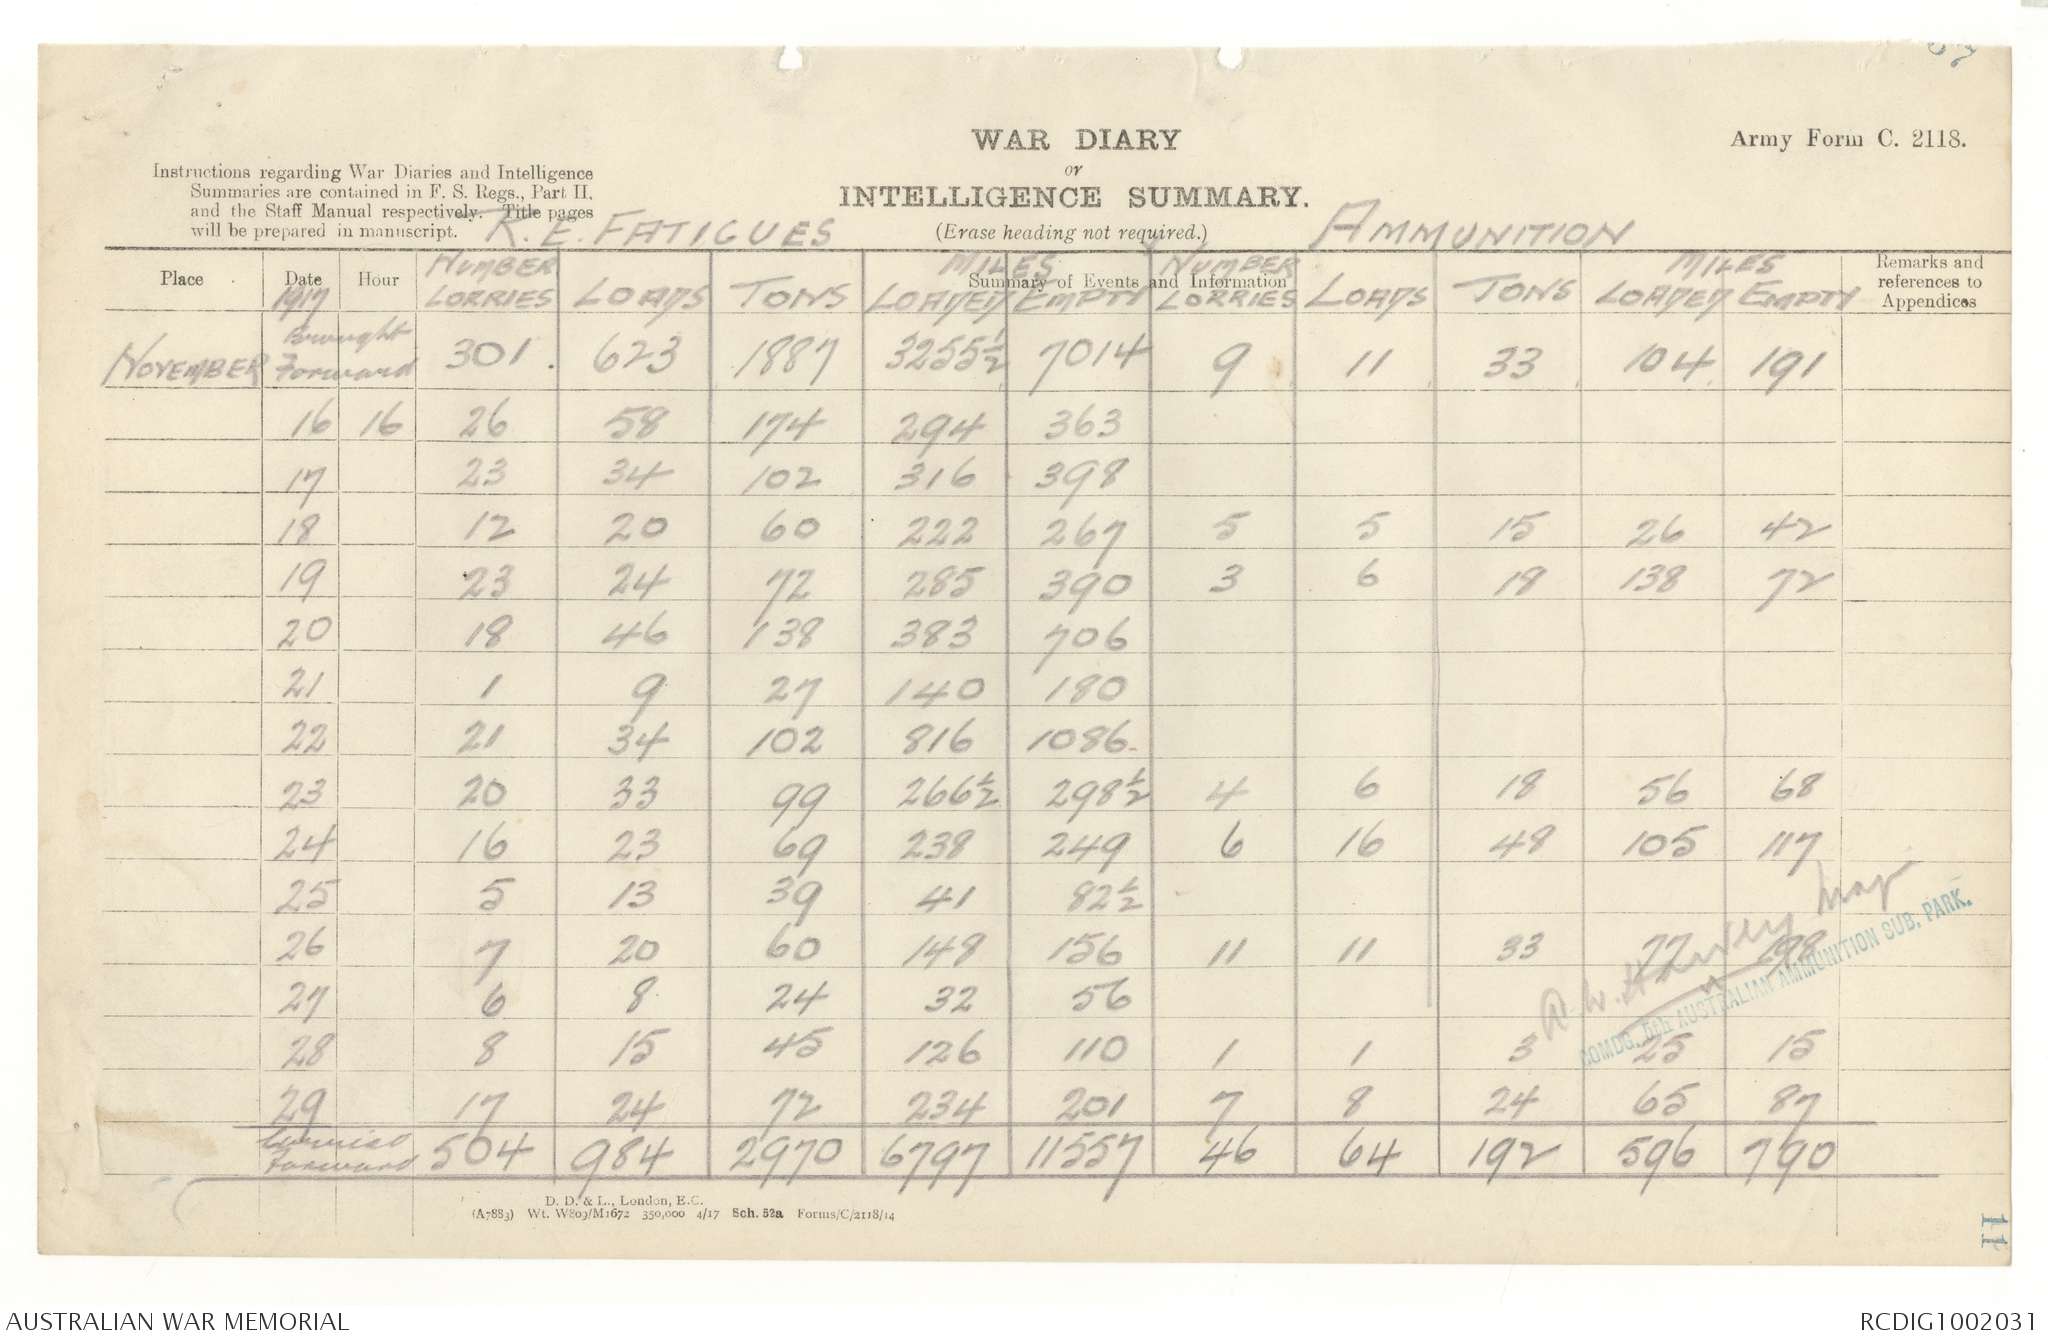 WAR DIARY
or
INTELLIGENCE SUMMARY.
(Erase heading not required.)
Army Form C. 2118.
Instructions regarding War Diaries and Intelligence
Summaries are contained in F. S. Regs., Part II,
and the Staff Manual respectively. Title pages
will be prepared in manuscript.
R.E. FATIGUES AMMUNITION
Place Date Hour Summary of Events and Information Remarks and references to Appendices
1917 NUMBER LORRIES LOADS TONS MILES LOADED EMPTY NUMBER LORRIES LOADS TONS MILES LOADED EMPTY
NOVEMBER Brought Forward 301. 623 1887 3255½ 7014 9 11 33 104 191
16 16 26 58 174 294 363
17 23 34 102 316 398
18 12 20 60 222 267 5 5 15 26 42
19 23 24 72 285 390 3 6 18 138 72
20 18 46 138 383 706
21 1 9 27 140 180
22 21 34 102 816 1086
23 20 33 99 266½ 298½ 4 6 18 56 68
24 16 23 69 238 249 6 16 48 105 117
25 5 13 39 41 82½
26 7 20 60 148 156 11 11 33 77 198
27 6 8 24 32 56
28 8 15 45 126 110 1 1 3 25 15
29 17 24 72 234 201 7 8 24 65 87
Carried Forward 504 984 2970 6797 11557 46 64 192 596 790
COMDG. 5th AUSTRALIAN AMMUNITION SUB. PARK.
D. D. & L., London, E.C.
(A7883) Wt. W809/M1672 350,000 4/17 Sch. 52a Forms/C/2118/14
11
AUSTRALIAN WAR MEMORIAL RCDIG1002031